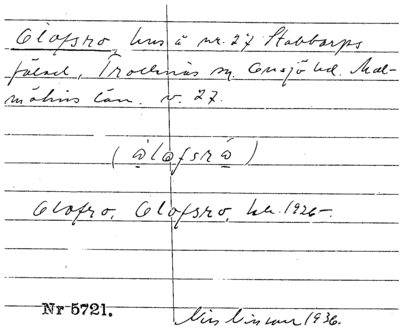 Olofsro, hus å nr. 27 Stabbarps
fälad, Trollenäs sn, Onsjö hd. Mal-
möhus län. v. 27.
(òlofsrò)
Olofro, Olofsro, kk. 1926-.
Nr 5721.
1936.